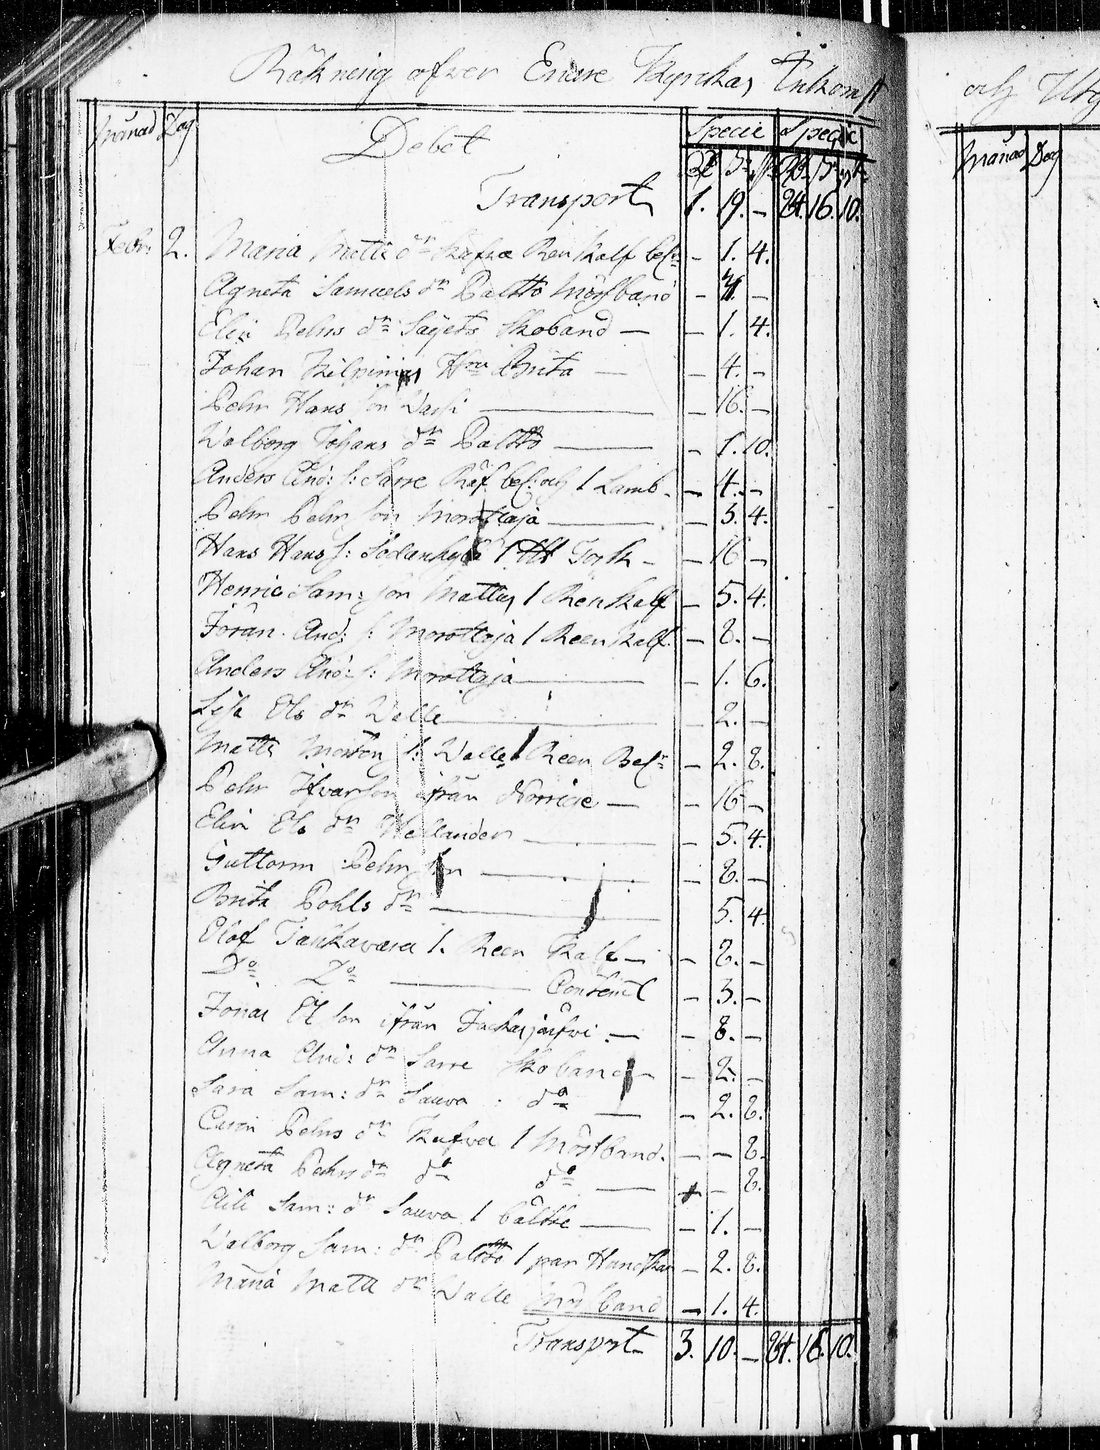 Räkning öfwer Enare Kyrckas Inkomst
och Utg
Månad Dag Debet Specie Specie
Månad Dag
Rd s. r. Rd s. r.
Transport 1. 19. — 24. 16. 10.
Febr: 2. Maria Matts dr Kufwa Ren Kalf bels: — 1. 4.
Agneta Samuels dr Paltto Mössband — 4. —
Elin Pehrs dr Sajets Skoband — — 1. 4.
Johan Kilpinus Hru Brita — — 4. —
Pehr Hans son — 16. —
Walborg Johans dr Paltto — — 1. 10.
Anders And: s: Sarre Räf bels: och 1 Lamb. — 4. —
Pehr Pehr son Morottaja — — 5. 4.
Hans Hans s: Sodankylä 1 Torsk — — 16 —
Henric Sam: son Mattus 1 Ren Kalf — 5. 4.
Jöran And: s: Morottaja 1 Reen Kalf — 8. —
Anders And: s: Morottaja — — 1. 6.
Lisa Ols dr Walle — 2. —
Matts Morten s: Walle 1 Reen Bels: — 2. 8.
Pehr Ifwarson ifrån Norrige — — 16 —
Elin Ols dr — — 5. 4.
Guttorm Pehr son — — 8. —
Brita Pohls dr — 5. 4.
Olof 1. Reen Kalf — — 8. —
Do Do — — 3. —
Jonas Ol son ifrån — — 8. —
Anna And: dr Sarre Skoband — — 2. —
Sara Sam: dr Sauva do — — 2. 8.
Carin Pehrs dr Kufwa 1 Mössband. — — 8.
Agneta Pehrs dr do do — — 8.
Aili Sam: dr Sauva 1 bälte — — 1. —
Walborg Sam: dr Paltto 1 par Handskar — 2. 8.
Maria Matts dr Walle Mössband — 1. 4.
Transport 3. 10. — 24. 16. 10.